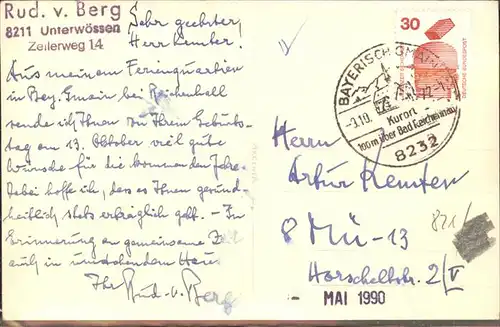 Rud. v. Berg
8211 Unterwössen
Zellerweg 14
Sehr geehrter
Herr Kemter.
Aus meinem Ferienquartier
in Bay. Gmain bei Reichenhall
sende ich Ihnen zu Ihrem Geburts-
tag am 13. Oktober viel gute
Wünsche für die kommenden Jahre.
Dabei hoffe ich, dass es Ihnen gesund-
heitlich stets erträglich geht. - In
Erinnerung an gemeinsame Zeit
auch in umstehendem Haus
Ihr Rud. v. Berg
30
DEUTSCHE BUNDESPOST
BAYERISCH GMAIN
-9.10.
Kurort
100m über Bad Reichenhall
8232
Herrn
Artur Kemter
8 Mü-13
Horscheltstr. 2/V
821/
MAI 1990